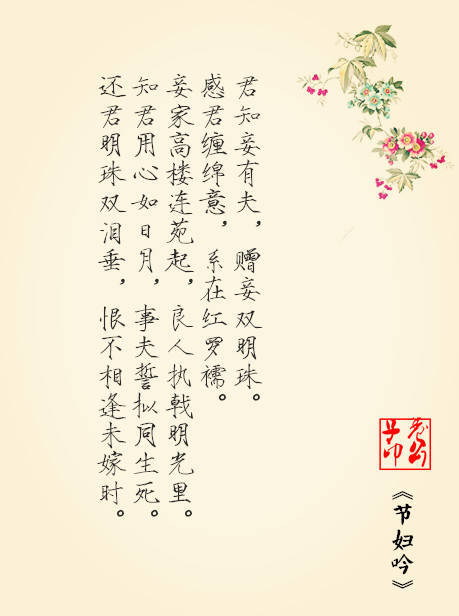 君知妾有夫，赠妾双明珠。
感君缠绵意，系在红罗襦。
妾家高楼连苑起，良人执戟明光里。
知君用心如日月，事夫誓拟同生死。
还君明珠双泪垂，恨不相逢未嫁时。
《节妇吟》